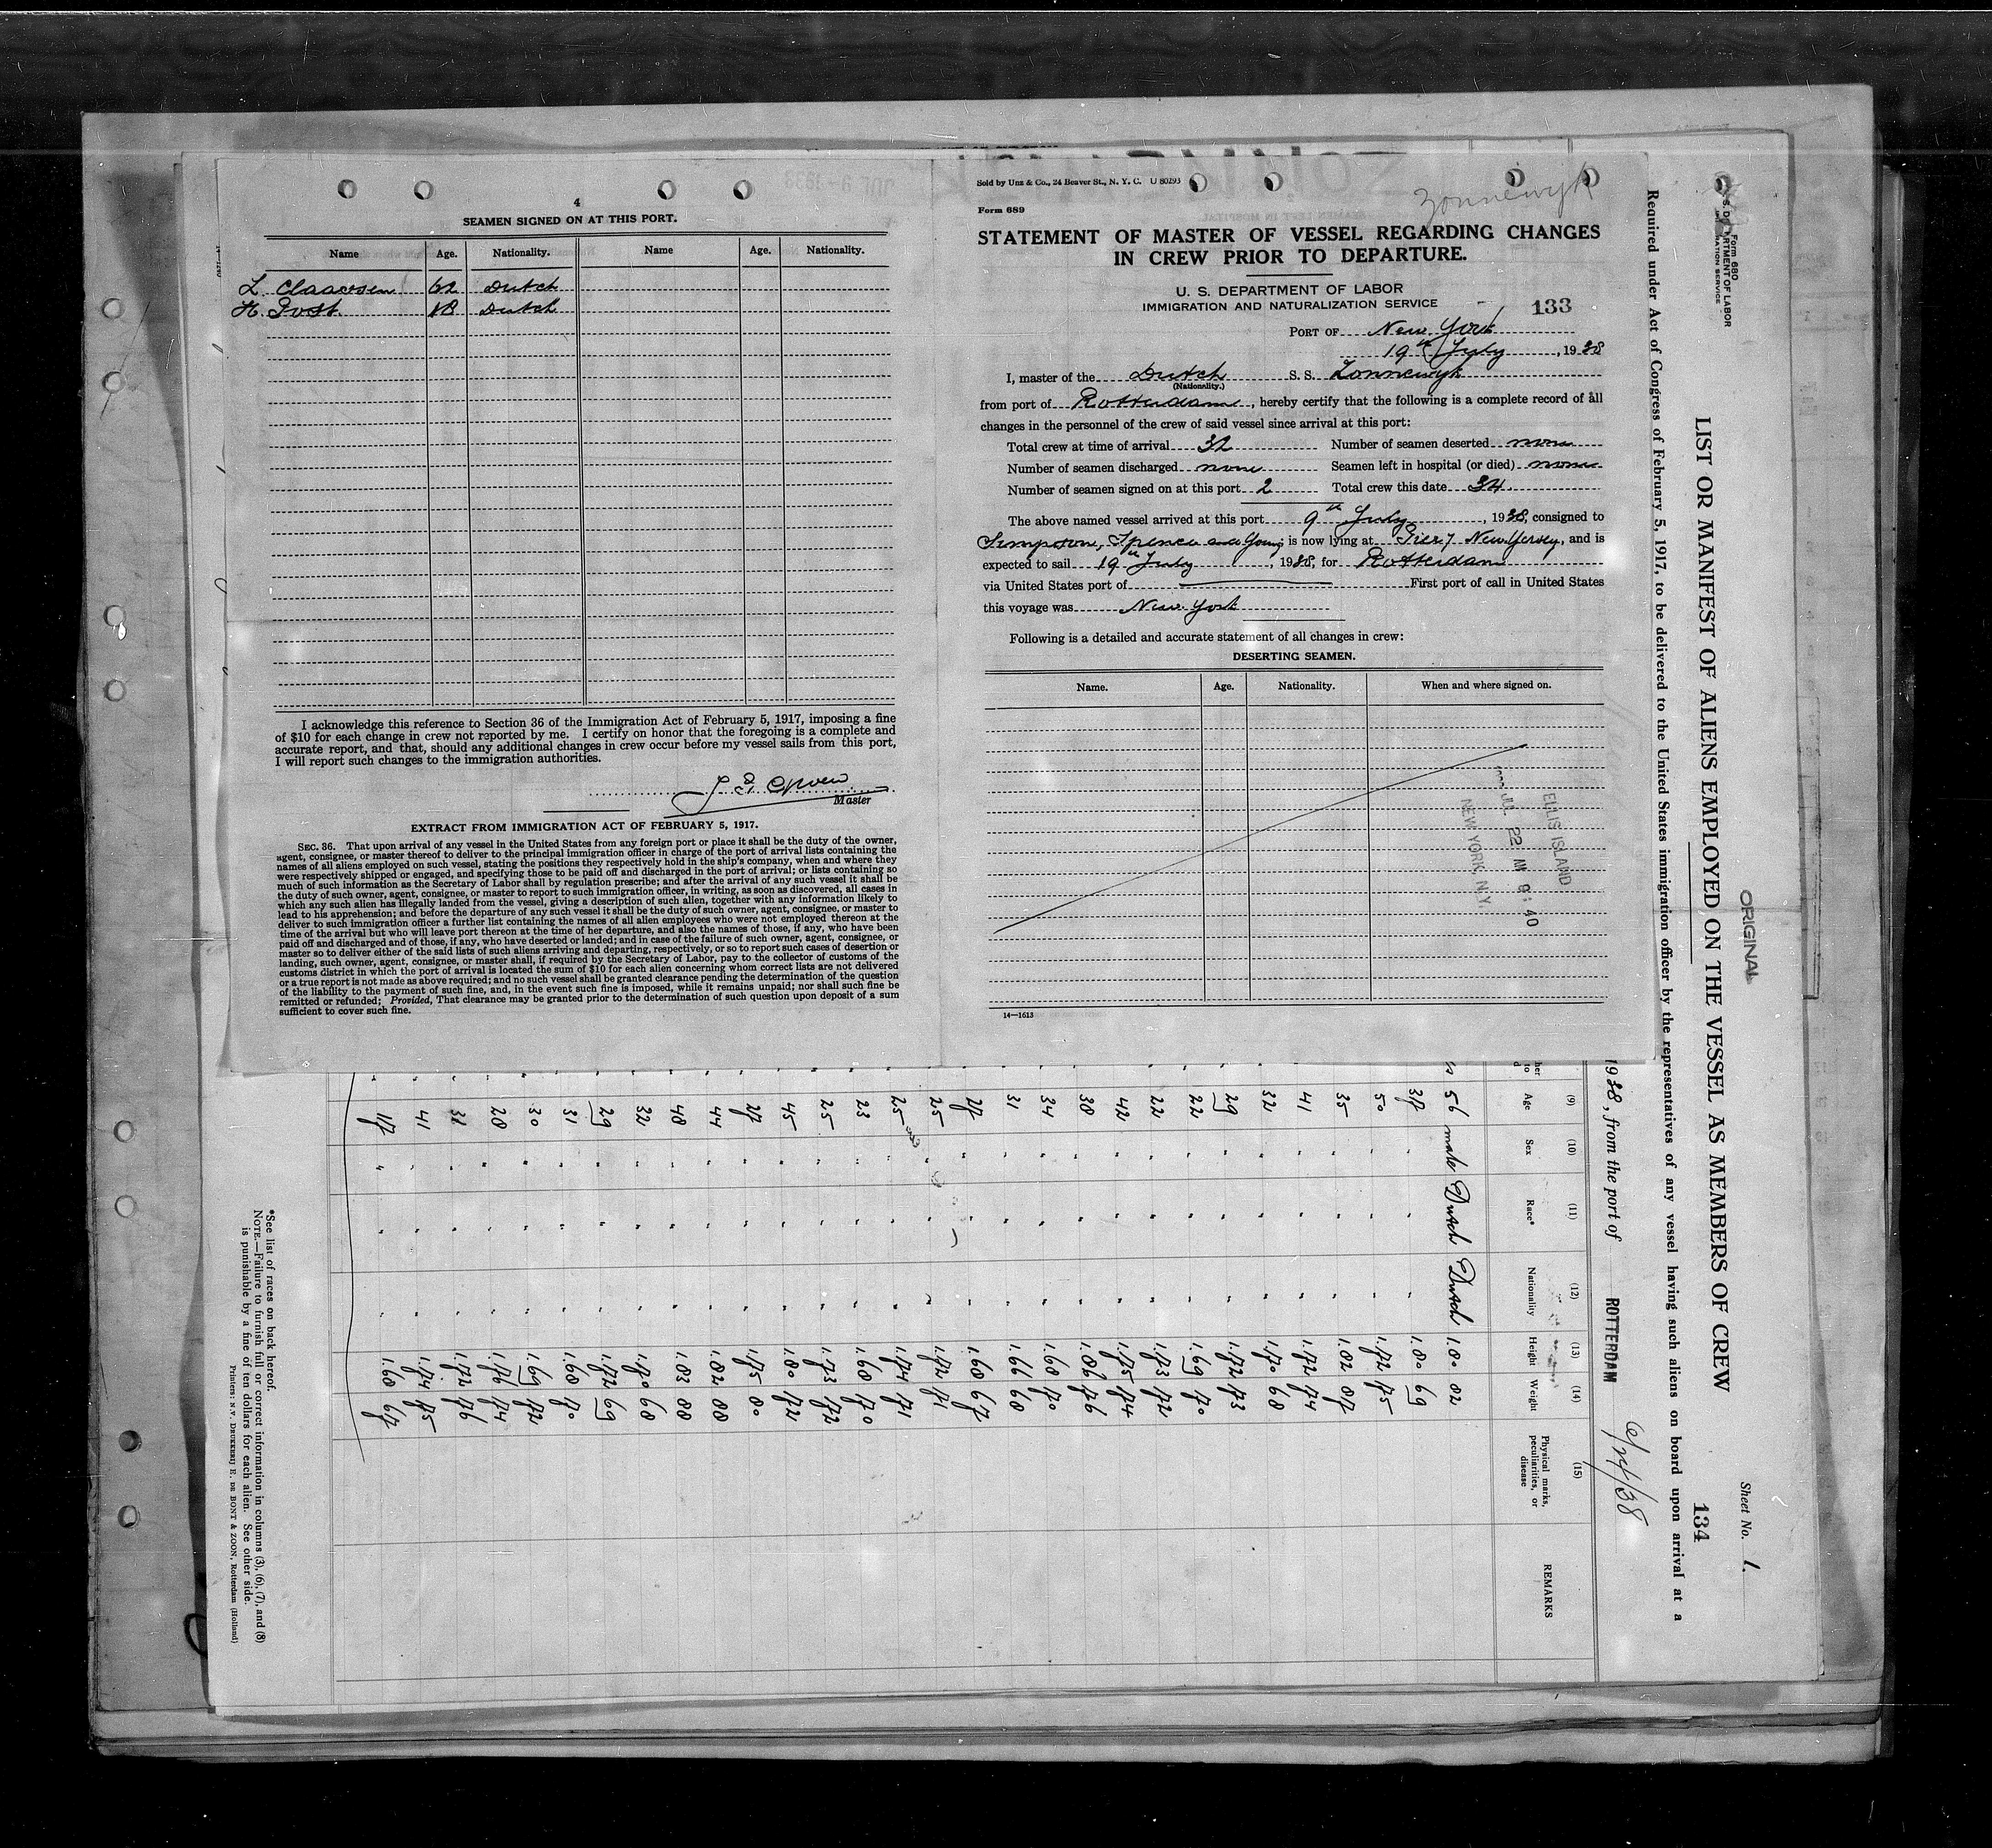 4
SEAMEN SIGNED ON AT THIS PORT.
Name Age. Nationality. Name Age. Nationality.
L. Claassen 62 Dutch
H. Post 18 Dutch
I acknowledge this reference to Section 36 of the Immigration Act of February 5, 1917, imposing a fine
of $10 for each change in crew not reported by me. I certify on honor that the foregoing is a complete and
accurate report, and that, should any additional changes in crew occur before my vessel sails from this port,
I will report such changes to the immigration authorities.
Master
EXTRACT FROM IMMIGRATION ACT OF FEBRUARY 5, 1917.
SEC. 36. That upon arrival of any vessel in the United States from any foreign port or place it shall be the duty of the owner,
agent, consignee, or master thereof to deliver to the principal immigration officer in charge of the port of arrival lists containing the
names of all aliens employed on such vessel, stating the positions they respectively hold in the ship's company, when and where they
were respectively shipped or engaged, and specifying those to be paid off and discharged in the port of arrival; or lists containing so
much of such information as the Secretary of Labor shall by regulation prescribe; and after the arrival of any such vessel it shall be
the duty of such owner, agent, consignee, or master to report to such immigration officer, in writing, as soon as discovered, all cases in
which any such alien has illegally landed from the vessel, giving a description of such alien, together with any information likely to
lead to his apprehension; and before the departure of any such vessel it shall be the duty of such owner, agent, consignee, or master to
deliver to such immigration officer a further list containing the names of all alien employees who were not employed thereon at the
time of the arrival but who will leave port thereon at the time of her departure, and also the names of those, if any, who have been
paid off and discharged and of those, if any, who have deserted or landed; and in case of the failure of such owner, agent, consignee, or
master so to deliver either of the said lists of such aliens arriving and departing, respectively, or so to report such cases of desertion or
landing, such owner, agent, consignee, or master shall, if required by the Secretary of Labor, pay to the collector of customs of the
customs district in which the port of arrival is located the sum of $10 for each alien concerning whom correct lists are not delivered
or a true report is not made as above required; and no such vessel shall be granted clearance pending the determination of the question
of the liability to the payment of such fine, and, in the event such fine is imposed, while it remains unpaid; nor shall such fine be
remitted or refunded; Provided, That clearance may be granted prior to the determination of such question upon deposit of a sum
sufficient to cover such fine.
Sold by Unz & Co., 24 Beaver St., N. Y. C. U 80293
Zonnewyk
Form 689
STATEMENT OF MASTER OF VESSEL REGARDING CHANGES
IN CREW PRIOR TO DEPARTURE.
U. S. DEPARTMENT OF LABOR
IMMIGRATION AND NATURALIZATION SERVICE
133
PORT OF New York
19th July, 1938
I, master of the Dutch S. S. Zonnewyk
(Nationality.)
from port of Rotterdam, hereby certify that the following is a complete record of all
changes in the personnel of the crew of said vessel since arrival at this port:
Total crew at time of arrival 32 Number of seamen deserted none
Number of seamen discharged none Seamen left in hospital (or died) none
Number of seamen signed on at this port 2 Total crew this date 34.
The above named vessel arrived at this port 9th July, 1938, consigned to
Simpson, Spence and Young; is now lying at Pier 7 New Yersey, and is
expected to sail 19th July, 1938, for Rotterdam
via United States port of First port of call in United States
this voyage was New York
Following is a detailed and accurate statement of all changes in crew:
DESERTING SEAMEN.
Name. Age. Nationality. When and where signed on.
ELLIS ISLAND
JUL 22 AM 9:40
NEW YORK, N.Y.
14—1613
Form 680
LIST OR MANIFEST OF ALIENS EMPLOYED ON THE VESSEL AS MEMBERS OF CREW
ORIGINAL
Sheet No. 1.
134
Required under Act of Congress of February 5, 1917, to be delivered to the United States immigration officer by the representatives of any vessel having such aliens on board upon arrival at a
1938, from the port of ROTTERDAM 6/24/38
(9) (10) (11) (12) (13) (14) (15)
Age Sex Race* Nationality Height Weight Physical marks, peculiarities, or disease REMARKS
56 male Dutch Dutch 1.80 82
37 " " " 1.80 69
50 " " " 1.72 75
35 " " " 1.82 87
41 " " " 1.72 74
32 " " " 1.70 68
29 " " " 1.72 73
22 " " " 1.69 70
22 " " " 1.73 72
42 " " " 1.75 74
38 " " " 1.86 76
34 " " " 1.68 70
31 " " " 1.66 68
27 " " " 1.60 67
25 " " " 1.72 71
25 " " " 1.74 71
23 " " " 1.68 70
25 " " " 1.73 72
45 " " " 1.80 72
27 " " " 1.75 80
44 " " " 1.82 88
48 " " " 1.83 88
32 " " " 1.70 68
29 " " " 1.72 69
31 " " " 1.68 70
30 " " " 1.69 72
28 " " " 1.76 74
31 " " " 1.72 76
41 " " " 1.74 75
17 " " " 1.68 67
*See list of races on back hereof.
NOTE.—Failure to furnish full or correct information in columns (3), (6), (7), and (8)
is punishable by a fine of ten dollars for each alien. See other side.
Printers: N.V. DRUKKERIJ E. DE BONT & ZOON, Rotterdam (Holland)